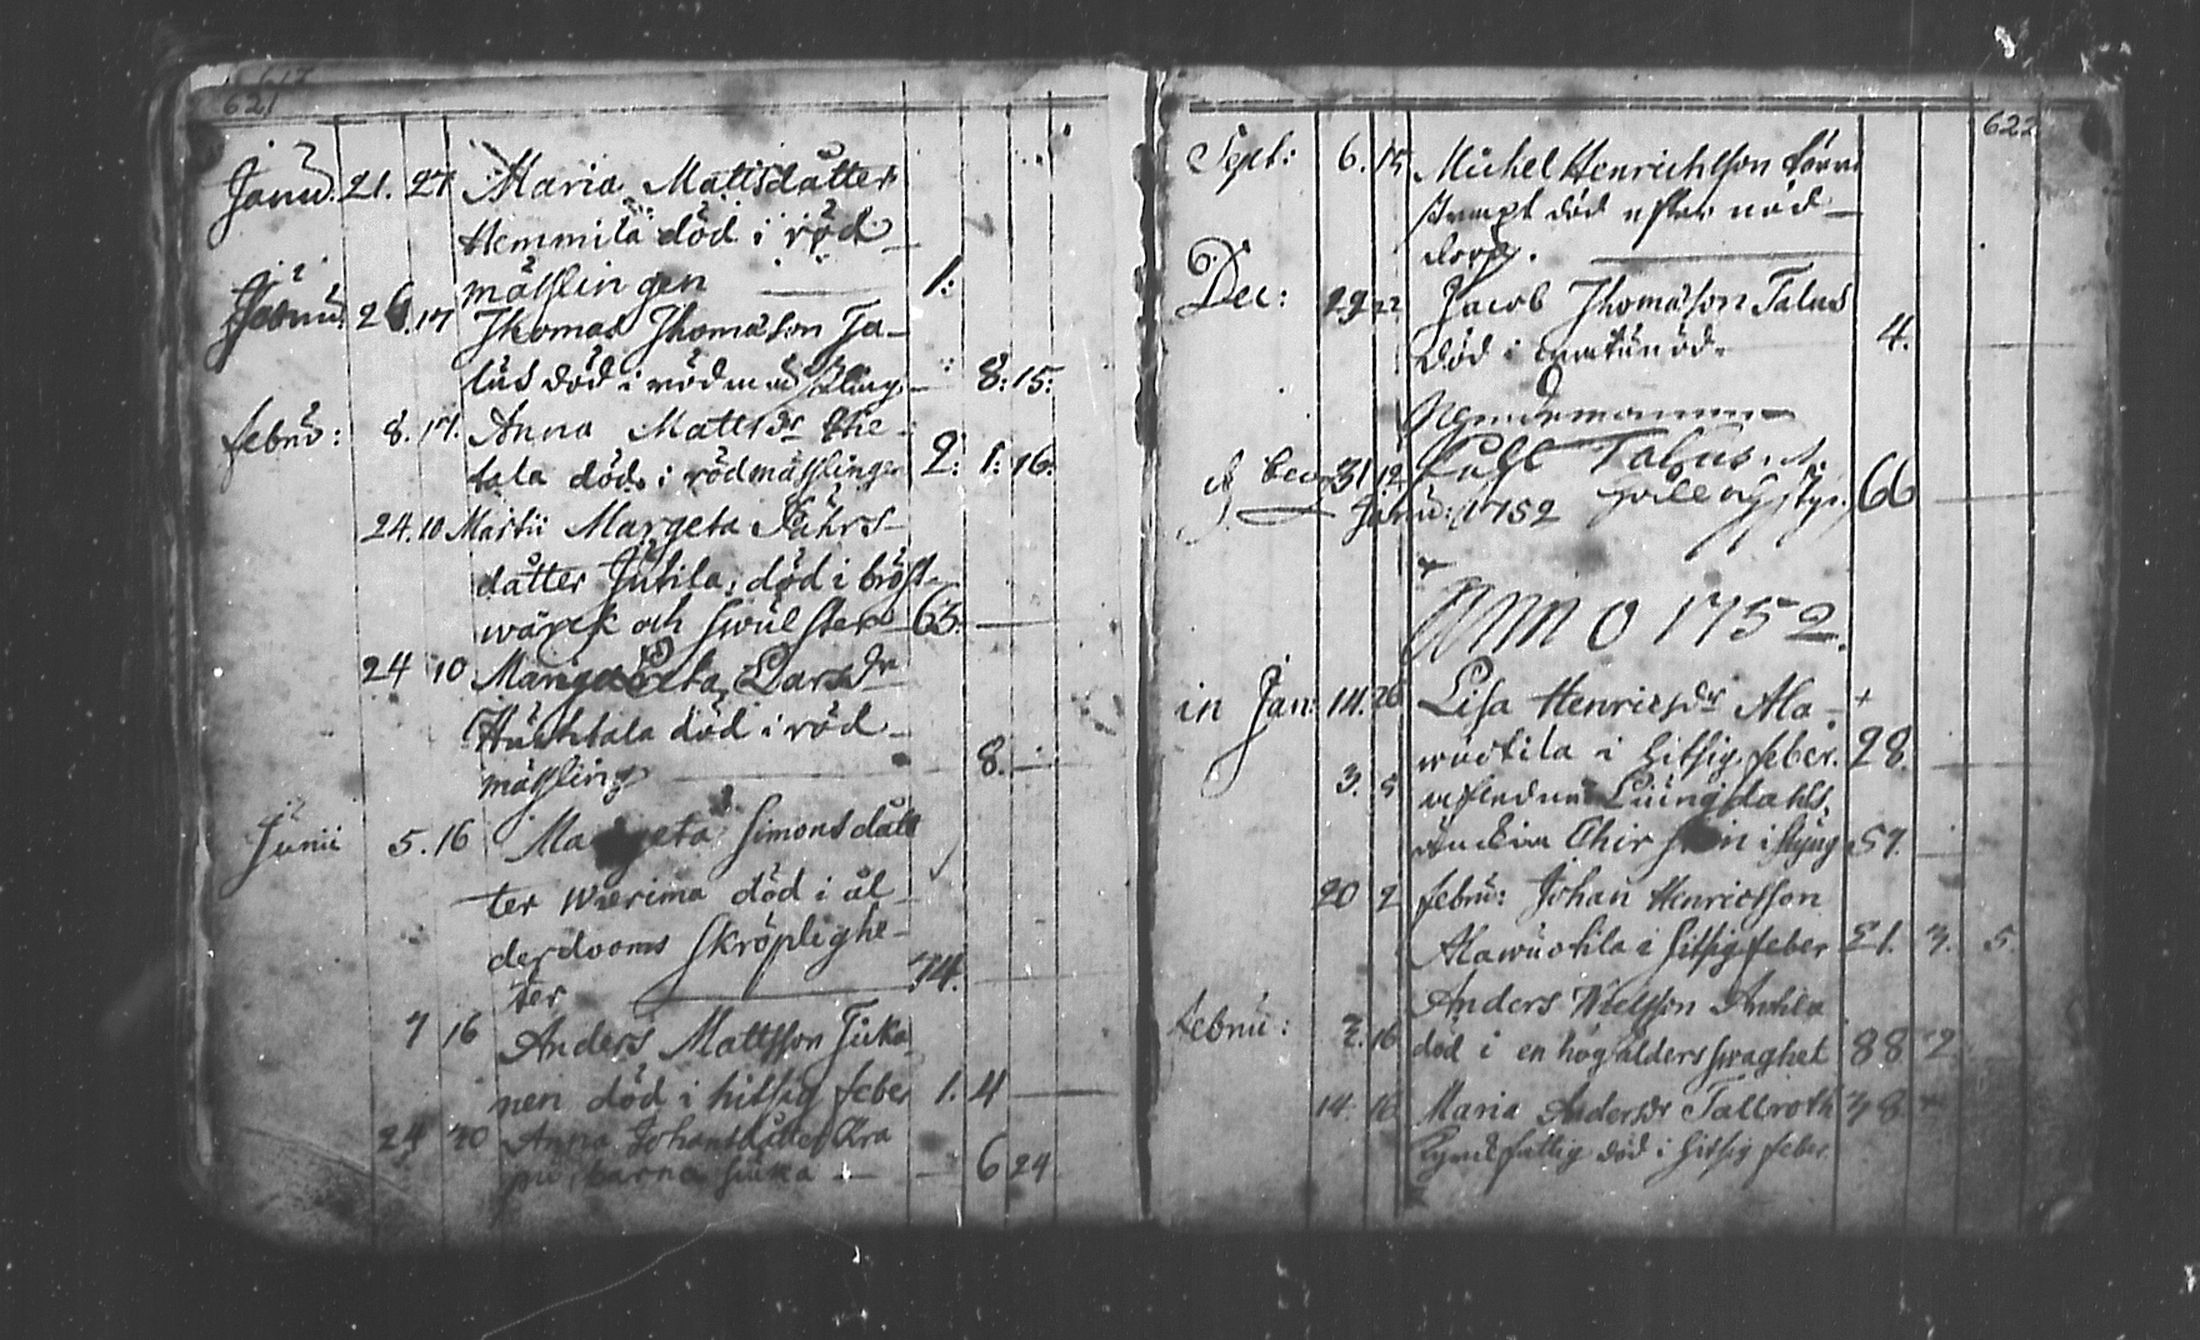 621
Janu. 21. 27 Maria Mattsdåtter
Hemmilä död i röd-
mässlingen — 1:
Janu. 26. 17 Thomas Thomasson Ta-
lus död i rödmässling. — 8: 15:
febru: 8. 17. Anna Mattsdr
tala död i rödmässlingen 2: 1: 16:
24. 10 Martii Margeta
dåtter Jutila, död i bröst-
wärck och swulster 63. —
24 10 Margareta Larsdr
Huhtala död i röd-
mässling — 8. —
Junii 5. 16 Margeta Simonsdåt
ter Wierima död i ål-
derdooms skröplighe-
ter — 74.
7 16 Anders Mattsson
nen död i hitsig feber 1. 4 —
24 30 Anna Johansdåtter Kra
pu, barna siuka — 6 24
622
Sept: 6. 15 Michel Henrichsson
död efter nöd-
dop. —
Dec: 29 22 Jacob Thomasson Talus
död i 4. —
Nemdemannen
Talus
31 12 66
Janu: 1752
ANNO 1752.
in Jan: 14. 26 Lisa Henricsdr Ala-
wuotila i hitsig feber. 28. —
3. 5 Liungdahls
änckia Chirstin i styng 57. —
20 2 febru: Johan Henricsson
Alawuotila i hitsig feber 21. 3. 5.
Anders Nielsson Anttila
febru: 2. 16 död i en hög ålders swaghet 88 2
14. 16 Maria Andersdr Tallroth 78
fattig död i hitsig feber